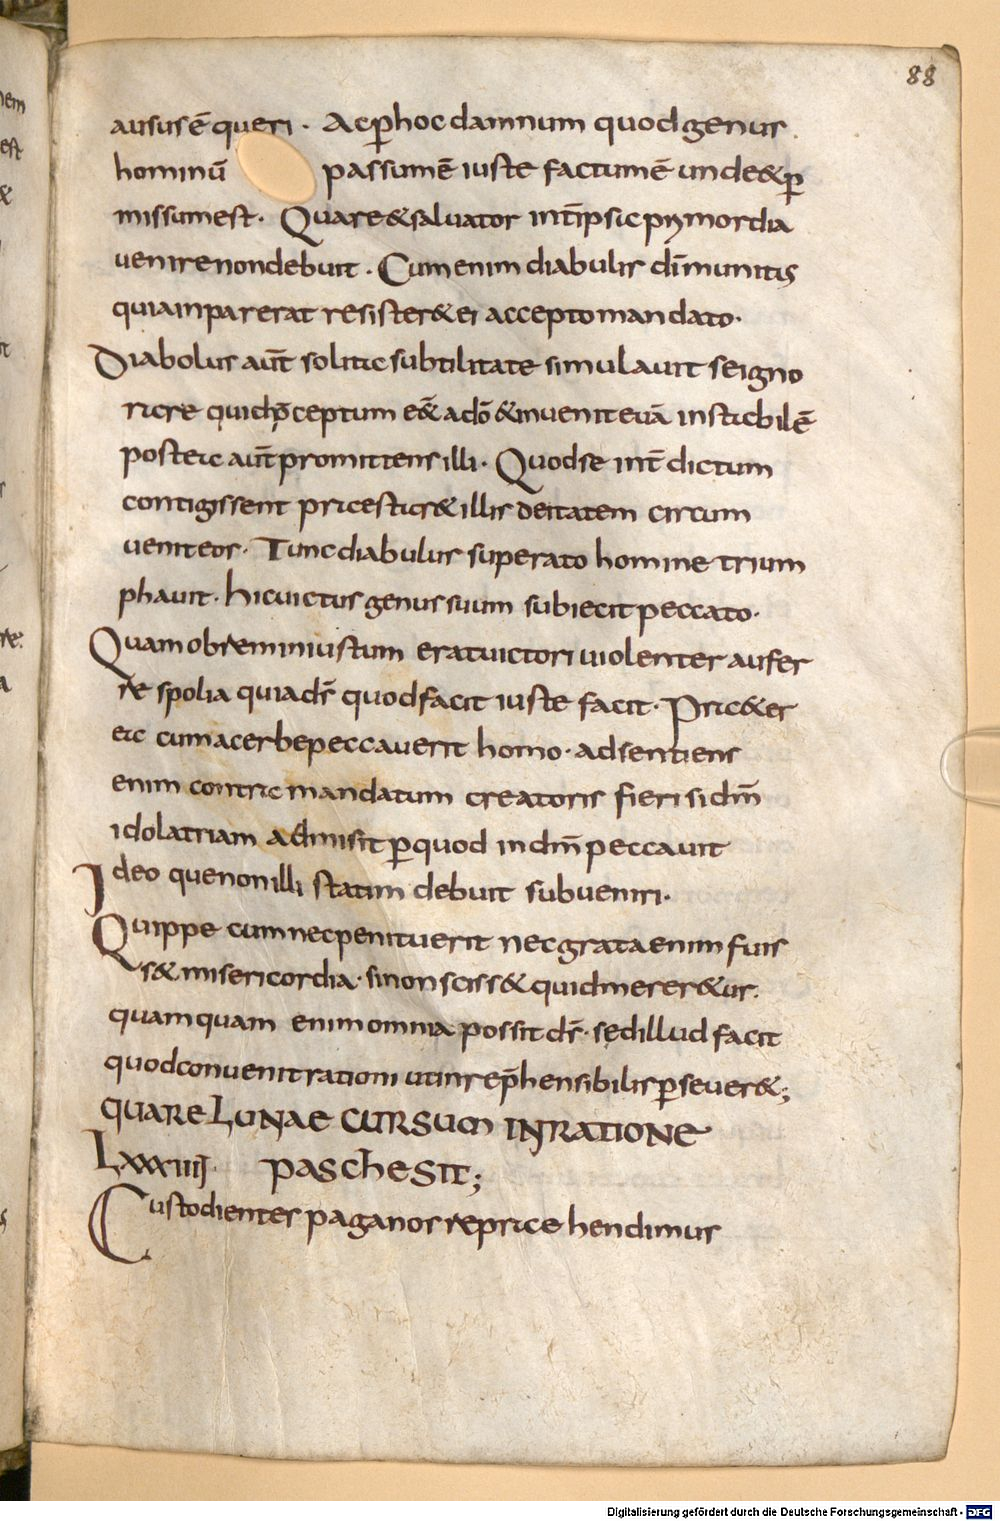 88
ausus ē queri · Ac ꝑ hoc damnum quod genus
hominū passum ē iuste factum ē unde & ꝑ
missum est · Quare & saluator int̄ ipsic pymordia
uenire non debuit · Cum enim diabulis dī munitis
quiam parerat resister& ei accepto mandato ·
Diabolus aut̄ solitic subtilitate simulauit se igno
ricre quid p̄ceptum e&̄ adō & inuenit euā insticbilē
posteic aut̄ promittens illi · Quod se int̄ dictum
contigissent pricesticr& illis deitatem circum
uenit eos · Tunc diabulus superato homine trium
phauit · hic uictus genus suum subiecit peccato ·
Quam obrem iniustum erat uictori uiolenter aufer
re spolia quia ds̄ quod facit iuste facit · Pric&er
eic cum acerbe peccauerit homo · adsentiens
enim contric mandatum creatoris fieri si dm̄
idolatriam admisit ꝑ quod in dm̄ peccauit
Ideo que non illi statim debuit subueniri ·
Quippe cum nec penituerit nec grata enim fuis
s& misericordia · si non sciss& quid merer&ur ·
quam quam enim omnia possit ds̄ · sed illud facit
quod conuenit rationi ut inrep̄hensibilis ꝑseuer& ;
QUARE LUNAE CURSUM IN RATIONE
LXXXIIIJ · PASCHE SIT ;
Custodientes paganos repricehendimus
Digitalisierung gefördert durch die Deutsche Forschungsgemeinschaft - DFG